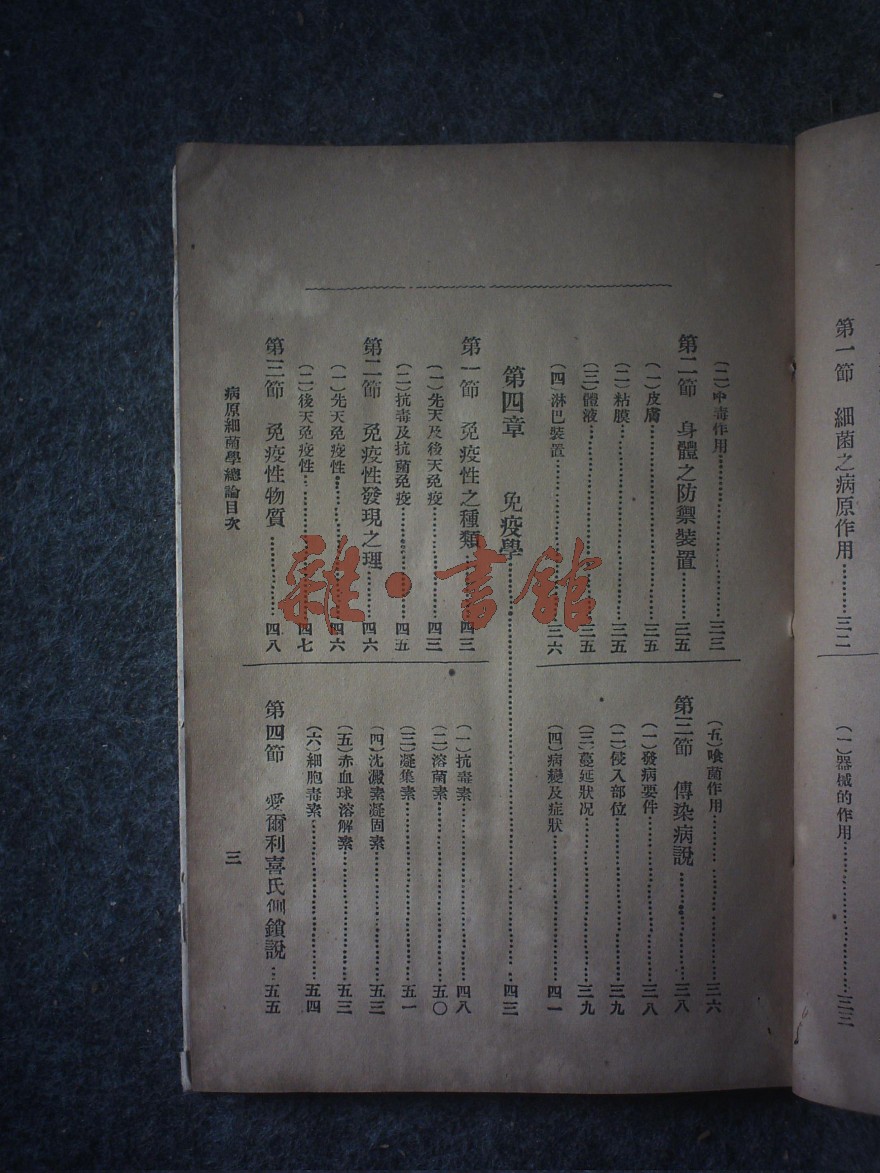 第一節　細菌之病原作用……三二
（一）器械的作用……三三
（二）中毒作用……三三
第二節　身體之防禦裝置……三五
（一）皮膚……三五
（二）粘膜……三五
（三）體液……三五
（四）淋巴裝置……三六
（五）喰菌作用……三六
第三節　傳染病說……三八
（一）發病要件……三八
（二）侵入部位……三九
（三）蔓延狀況……三九
（四）病變及症狀……四一
第四章　免疫學……四三
第一節　免疫性之種類……四三
（一）先天及後天免疫……四三
（二）抗毒及抗菌免疫……四五
第二節　免疫性發現之理……四六
（一）先天免疫性……四六
（二）後天免疫性……四七
第三節　免疫性物質……四八
（一）抗毒素……四八
（二）溶菌素……五〇
（三）凝集素……五一
（四）沈澱素凝固素……五三
（五）赤血球溶解素……五三
（六）細胞毒素……五四
第四節　愛爾利喜氏側鎖說……五五
病原細菌學總論目次
三
雜·書館